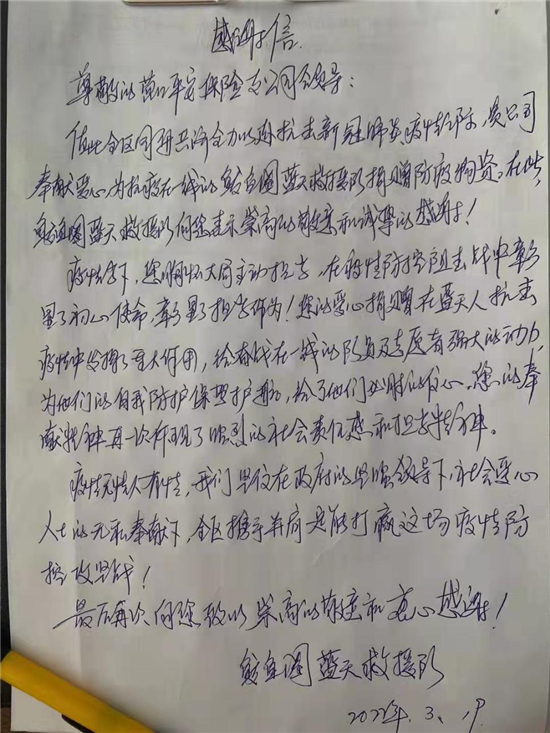 感谢信
尊敬的营口平安保险支公司领导:
值此全区同舟共济全力以赴抗击新冠肺炎疫情之际,贵公司
奉献爱心,为抗疫在一线的鲅鱼圈蓝天救援队捐赠防疫物资。在此,
鲅鱼圈蓝天救援队向您表示崇高的敬意和诚挚的感谢!
疫情当下,您胸怀大局主动担当,在疫情防控阻击战中彰
显了初心使命,彰显了担当作为!您的爱心捐赠在蓝天人抗击
疫情中发挥了巨大作用,给奋战在一线的队员及志愿者强大的动力,
为他们的自我防护保驾护航,给了他们必胜的信心。您的奉
献精神再一次体现了强烈的社会责任感和担当精神。
疫情无情人有情,我们坚信在政府的坚强领导下,社会爱心
人士的无私奉献下,全区携手并肩定能打赢这场疫情防
控攻坚战!
最后再次向您致以崇高的敬意和衷心感谢!
鲅鱼圈蓝天救援队
2022年.3.